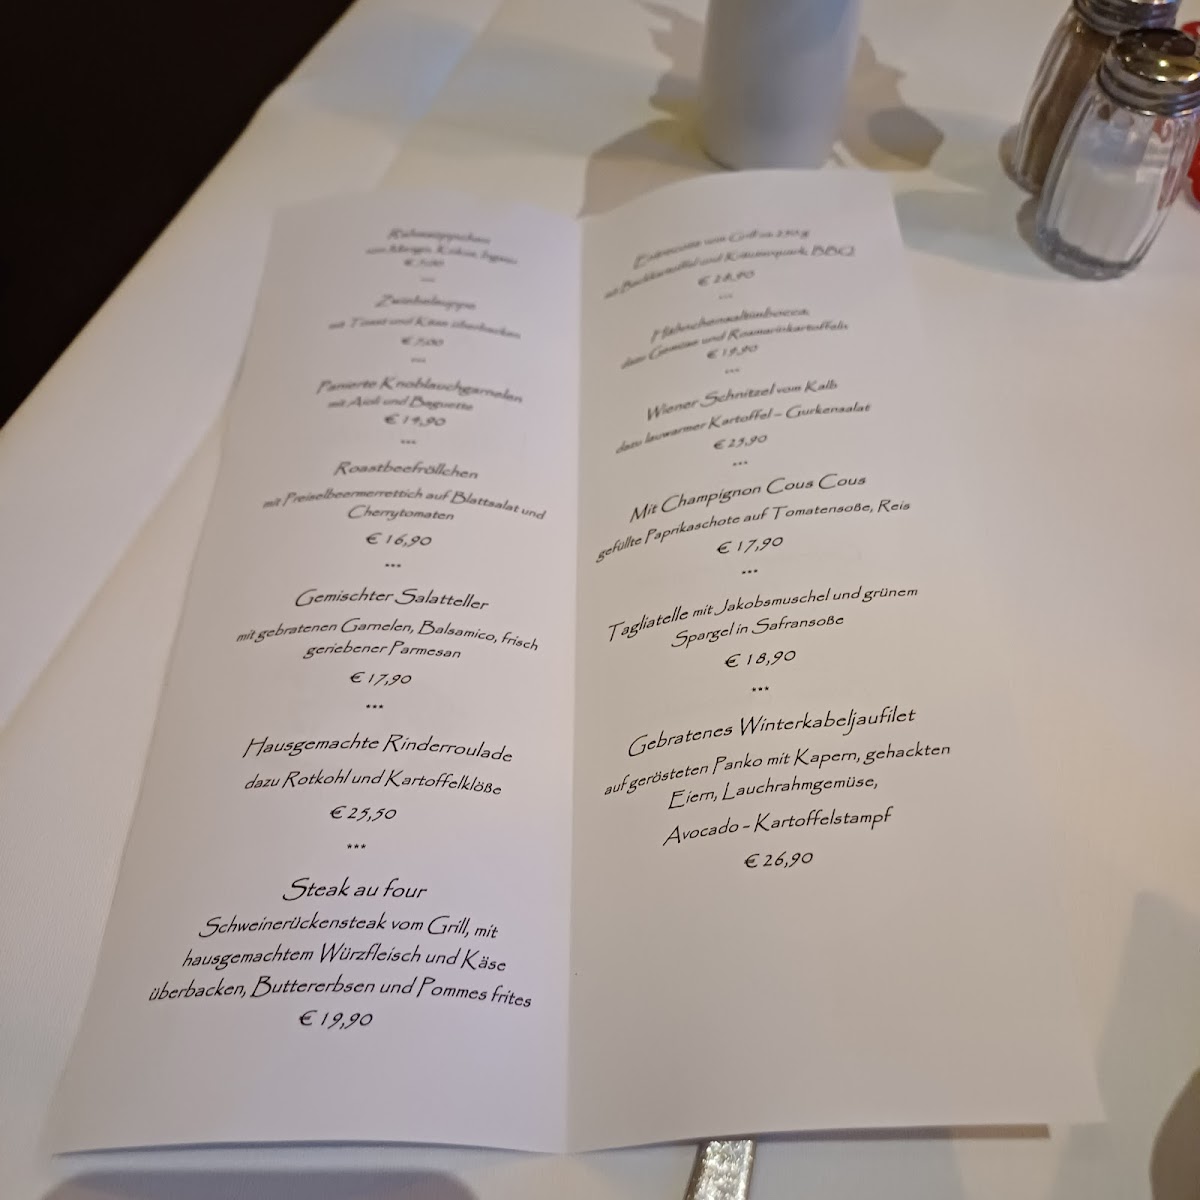 Rahmsüppchen
von Mango, Kokos, Ingwer
***
Zwiebelsuppe
mit Toast und Käse überbacken
€ 7,00
***
Panierte Knoblauchgarnelen
mit Aioli und Baguette
€ 14,90
***
Roastbeefröllchen
mit Preiselbeermerrettich auf Blattsalat und
Cherrytomaten
€ 16,90
***
Gemischter Salatteller
mit gebratenen Garnelen, Balsamico, frisch
geriebener Parmesan
€ 17,90
***
Hausgemachte Rinderroulade
dazu Rotkohl und Kartoffelklöße
€ 25,50
***
Steak au four
Schweinerückensteak vom Grill, mit
hausgemachtem Würzfleisch und Käse
überbacken, Buttererbsen und Pommes frites
€ 19,90
Entrecote vom Grill ca. 250 g
mit Backkartoffel und Kräuterquark, BBQ
€ 28,90
***
Hähnchensaltimbocca,
dazu Gemüse und Rosmarinkartoffeln
€ 19,90
***
Wiener Schnitzel vom Kalb
dazu lauwarmer Kartoffel – Gurkensalat
€ 25,90
***
Mit Champignon Cous Cous
gefüllte Paprikaschote auf Tomatensoße, Reis
€ 17,90
***
Tagliatelle mit Jakobsmuschel und grünem
Spargel in Safransoße
€ 18,90
***
Gebratenes Winterkabeljaufilet
auf gerösteten Panko mit Kapern, gehackten
Eiern, Lauchrahmgemüse,
Avocado - Kartoffelstampf
€ 26,90